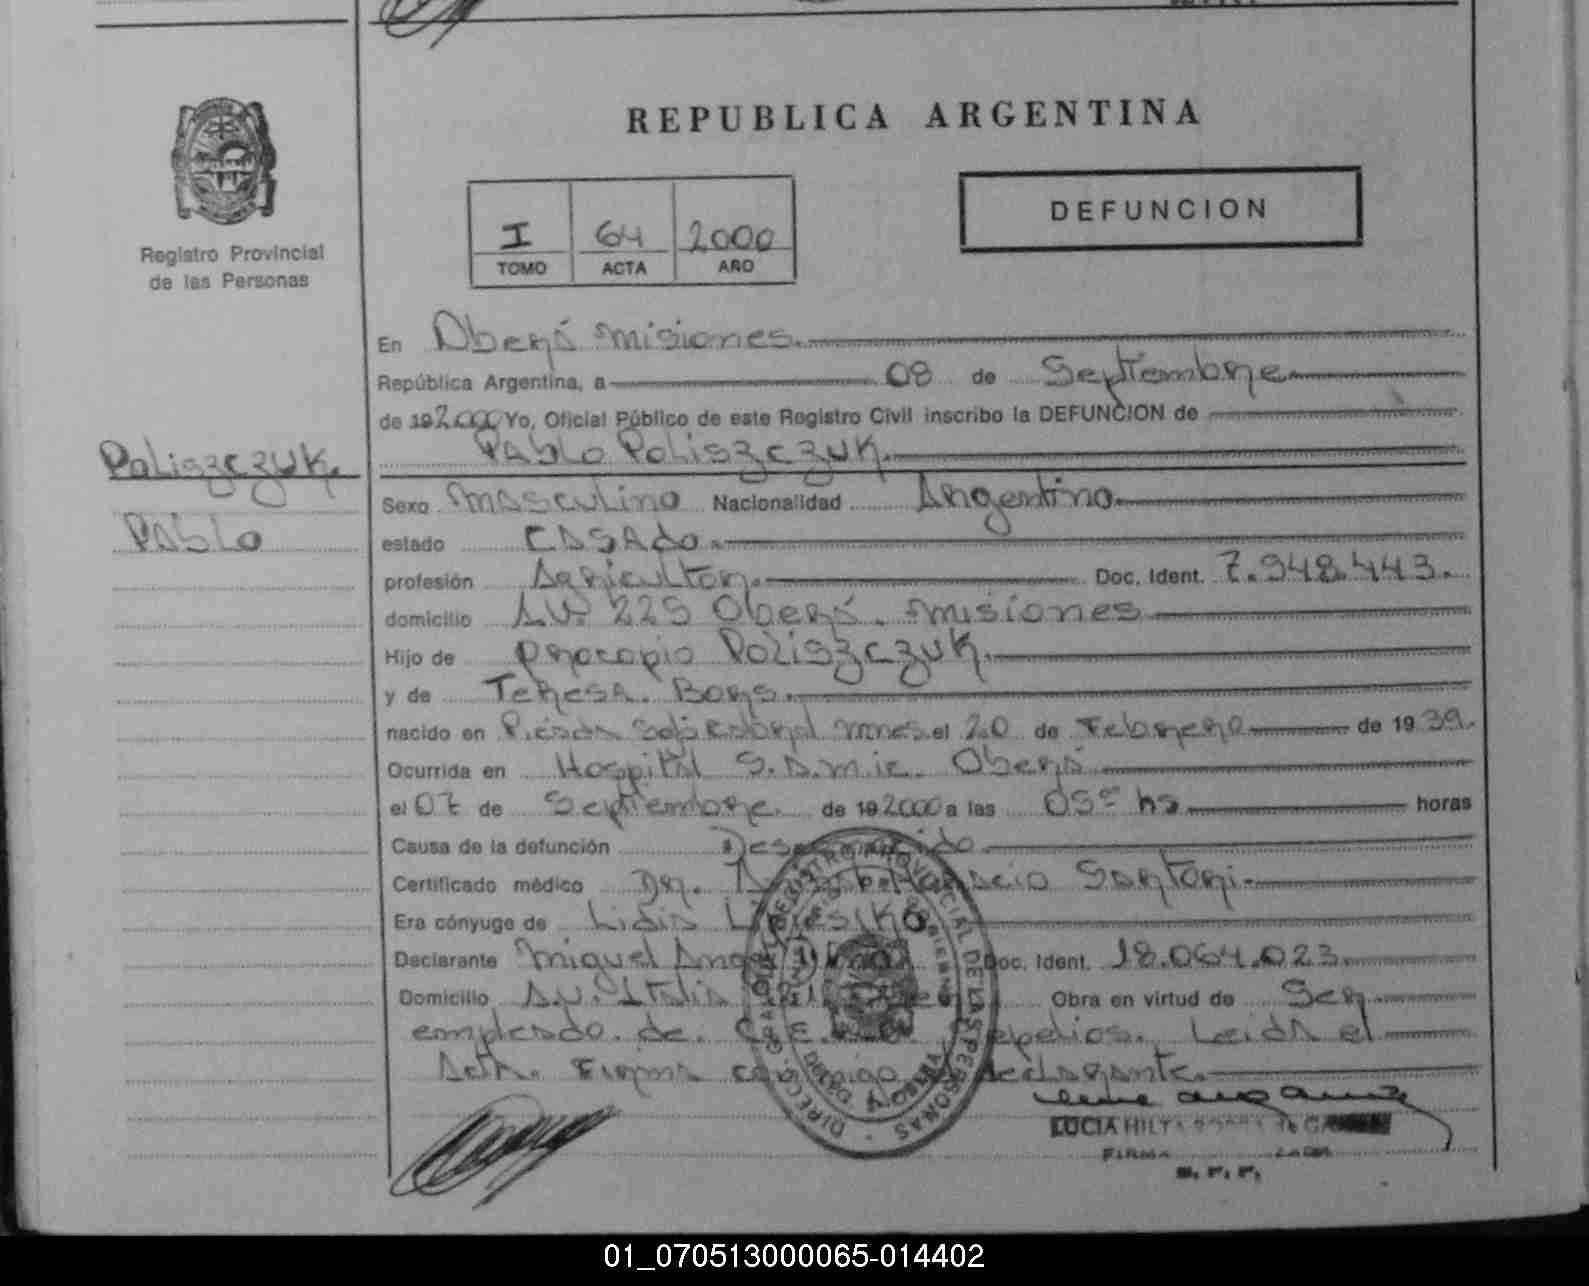 REPUBLICA ARGENTINA
Registro Provincial
de las Personas
I 64 2000
TOMO ACTA AÑO
DEFUNCION
En Oberá misiones.
República Argentina, a 08 de Septiembre
de 192000 Yo, Oficial Público de este Registro Civil inscribo la DEFUNCION de
Pablo Poliszczuk.
Poliszczuk.
Pablo
Sexo masculino Nacionalidad Argentino
estado casado.
profesión Agricultor. Doc. Ident. 7.948.443.
domicilio Av. 225 Oberá. misiones
Hijo de Procopio Poliszczuk.
y de Teresa. Borys.
nacido en Mnes. el 20 de Febrero de 1939.
Ocurrida en Hospital S.A.M.ic. Oberá
el 07 de Septiembre. de 192000 a las 05 hs horas
Causa de la defunción Desconocido.
Certificado médico Dr. Santori.
Era cónyuge de Lidia
Declarante Miguel Doc. Ident. 18.064.023.
Domicilio Av. Italia Obra en virtud de Ser
empleado. de. Sepelios. Leida el
Acta. Firma conmigo declarante.
LUCIA
FIRMA
DIRECC. GRAL. DEL REGISTRO PROVINCIAL DE LAS PERSONAS
01_070513000065-014402